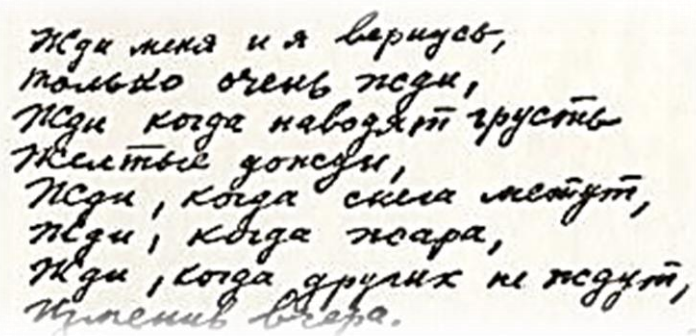 Жди меня и я вернусь,
только очень жди,
Жди когда наводят грусть
Желтые дожди,
Жди, когда снега метут,
Жди, когда жара,
Жди, когда других не ждут,
Изменив вчера.